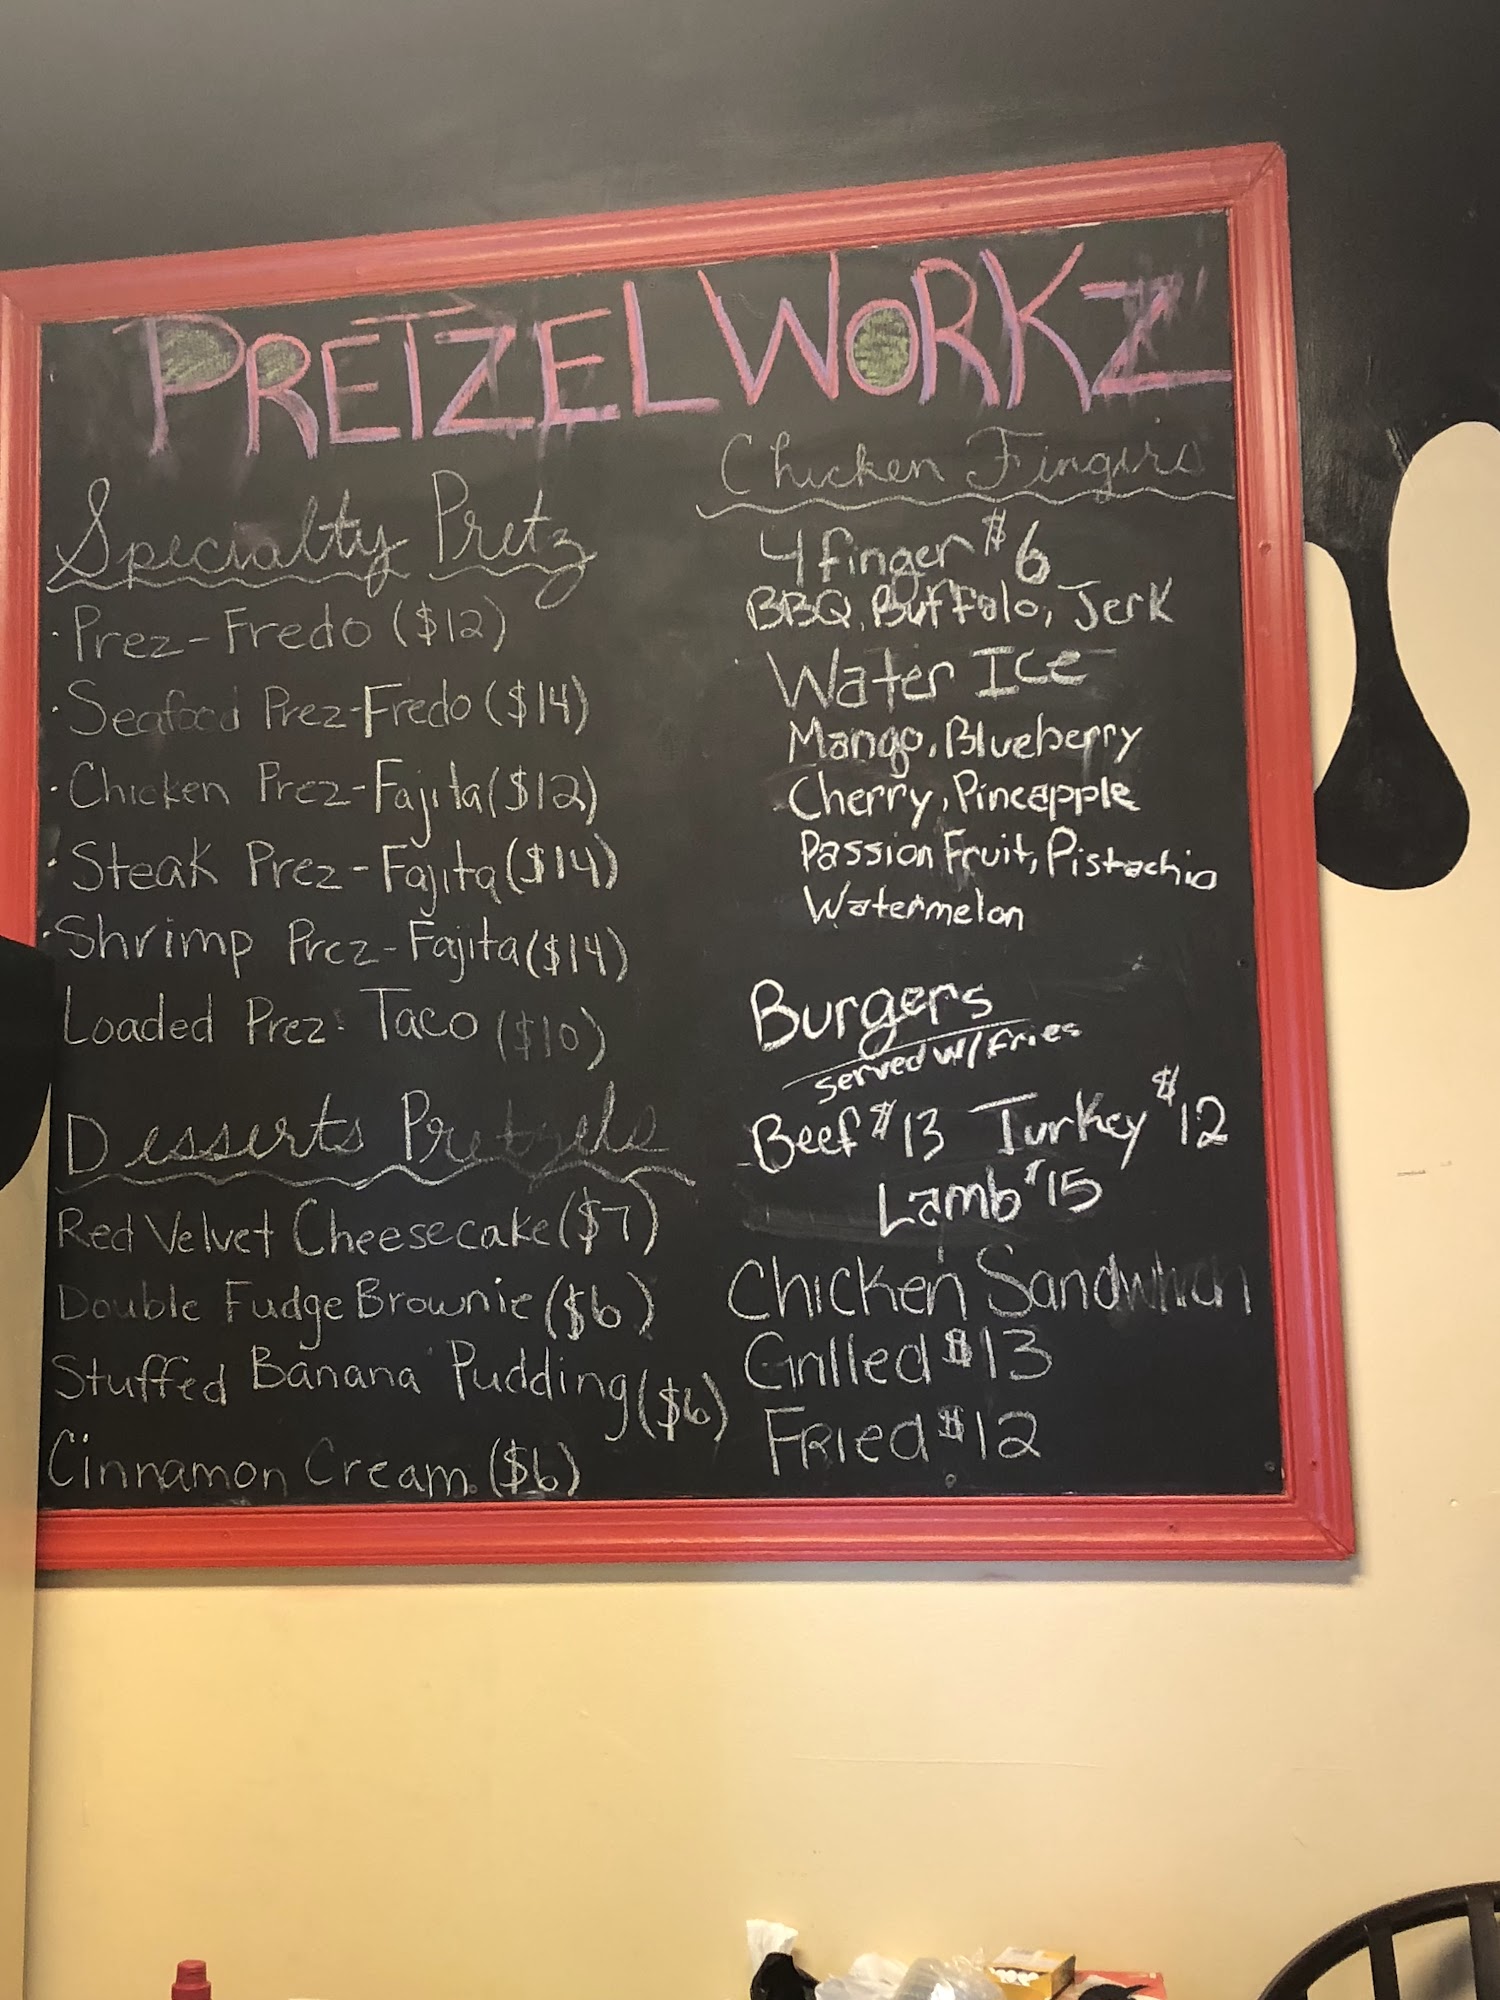 PRETZEL WORKZ
Specialty Pretz
· Prez-Fredo ($12)
· Seafood Prez-Fredo ($14)
· Chicken Prez-Fajita ($12)
· Steak Prez-Fajita ($14)
· Shrimp Prez-Fajita ($14)
Loaded Prez-Taco ($10)
Desserts Pretzels
Red Velvet Cheesecake ($7)
Double Fudge Brownie ($6)
Stuffed Banana Pudding ($6)
Cinnamon Cream ($6)
Chicken Fingers
4 finger $6
BBQ, Buffalo, Jerk
Water Ice
Mango, Blueberry
Cherry, Pineapple
Passion Fruit, Pistachio
Watermelon
Burgers
served w/ fries
Beef $13 Turkey $12
Lamb $15
Chicken Sandwhich
Grilled $13
Fried $12